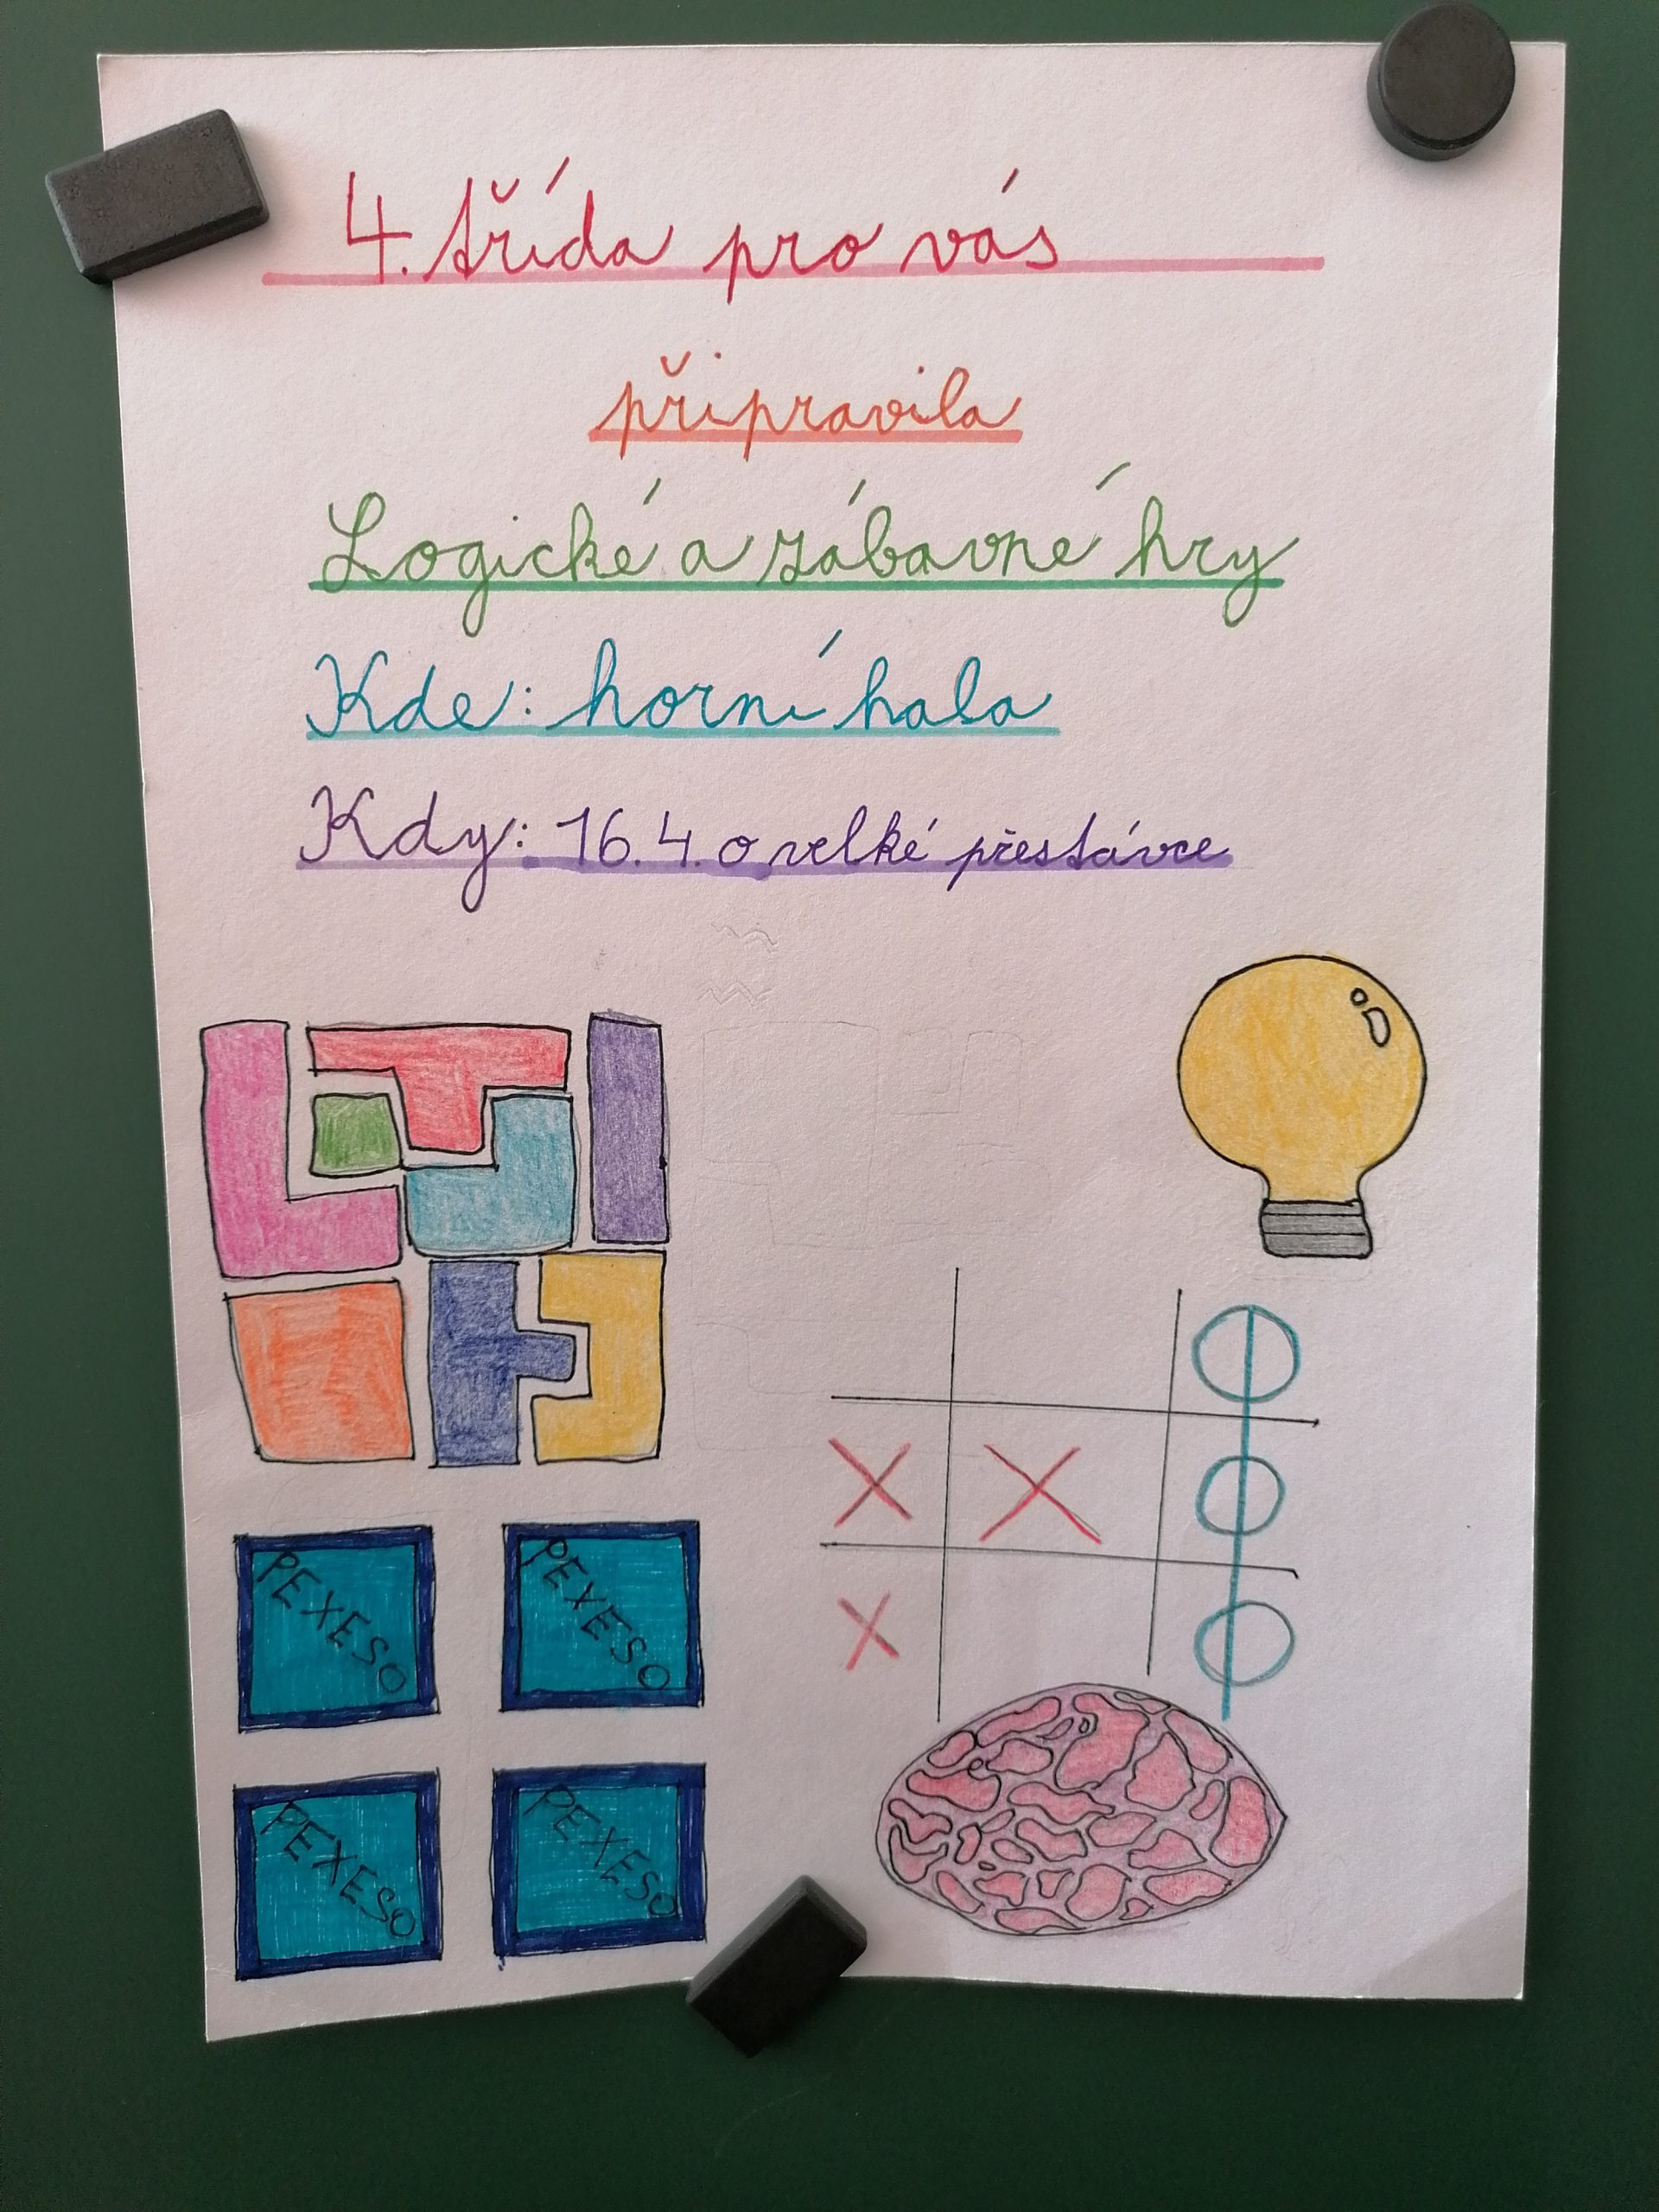 4. třída pro vás
připravila
Logické a zábavné hry
Kde: horní hala
Kdy: 16.4. o velké přestávce
PEXESO
PEXESO
PEXESO
PEXESO